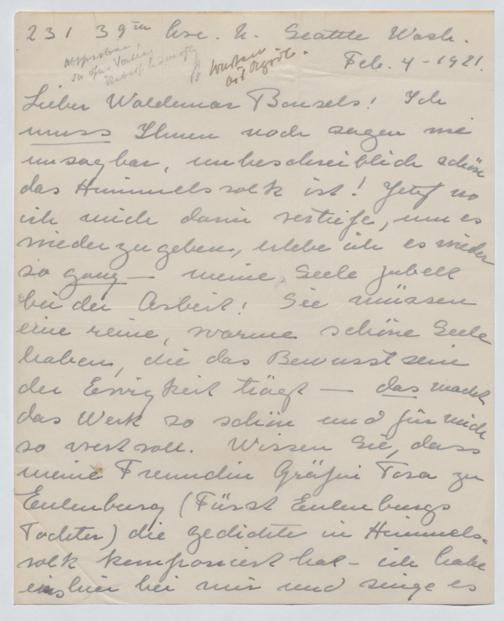 231 39th Ave. N. Seattle Wash.
Feb. 4 - 1921.
Lieber Waldemar Bonsels! Ich
muss Ihnen noch sagen wie
unsagbar, unbeschreiblich schön
das Himmelsvolk ist! Jetzt wo
ich mich darin vertiefe, um es
wiederzugeben, erlebe ich es wieder
so ganz — meine Seele jubelt
bei der Arbeit! Sie müssen
eine reine, warme schöne Seele
haben, die das Bewusstsein
der Ewigkeit trägt — das macht
das Werk so schön und für mich
so wertvoll. Wissen Sie, dass
meine Freundin Gräfin Tora zu
Eulenburg (Fürst Eulenburgs
Tochter) die gedichte in Himmels-
volk komponiert hat - ich habe
eins hier bei mir und singe es